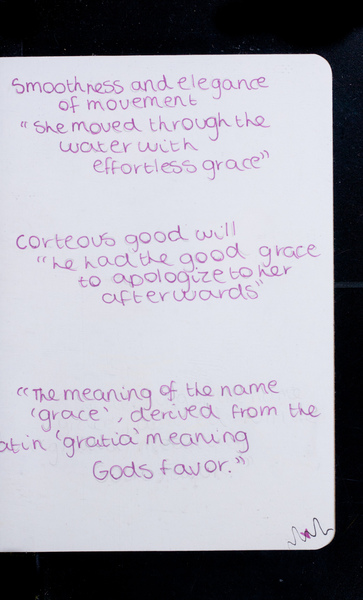 smoothness and elegance
of movement
"she moved through the
water with
effortless grace"
corteous good will
"he had the good grace
to apologize to her
afterwards"
"The meaning of the name
'grace', derived from the
atin 'gratia' meaning
Gods favor."